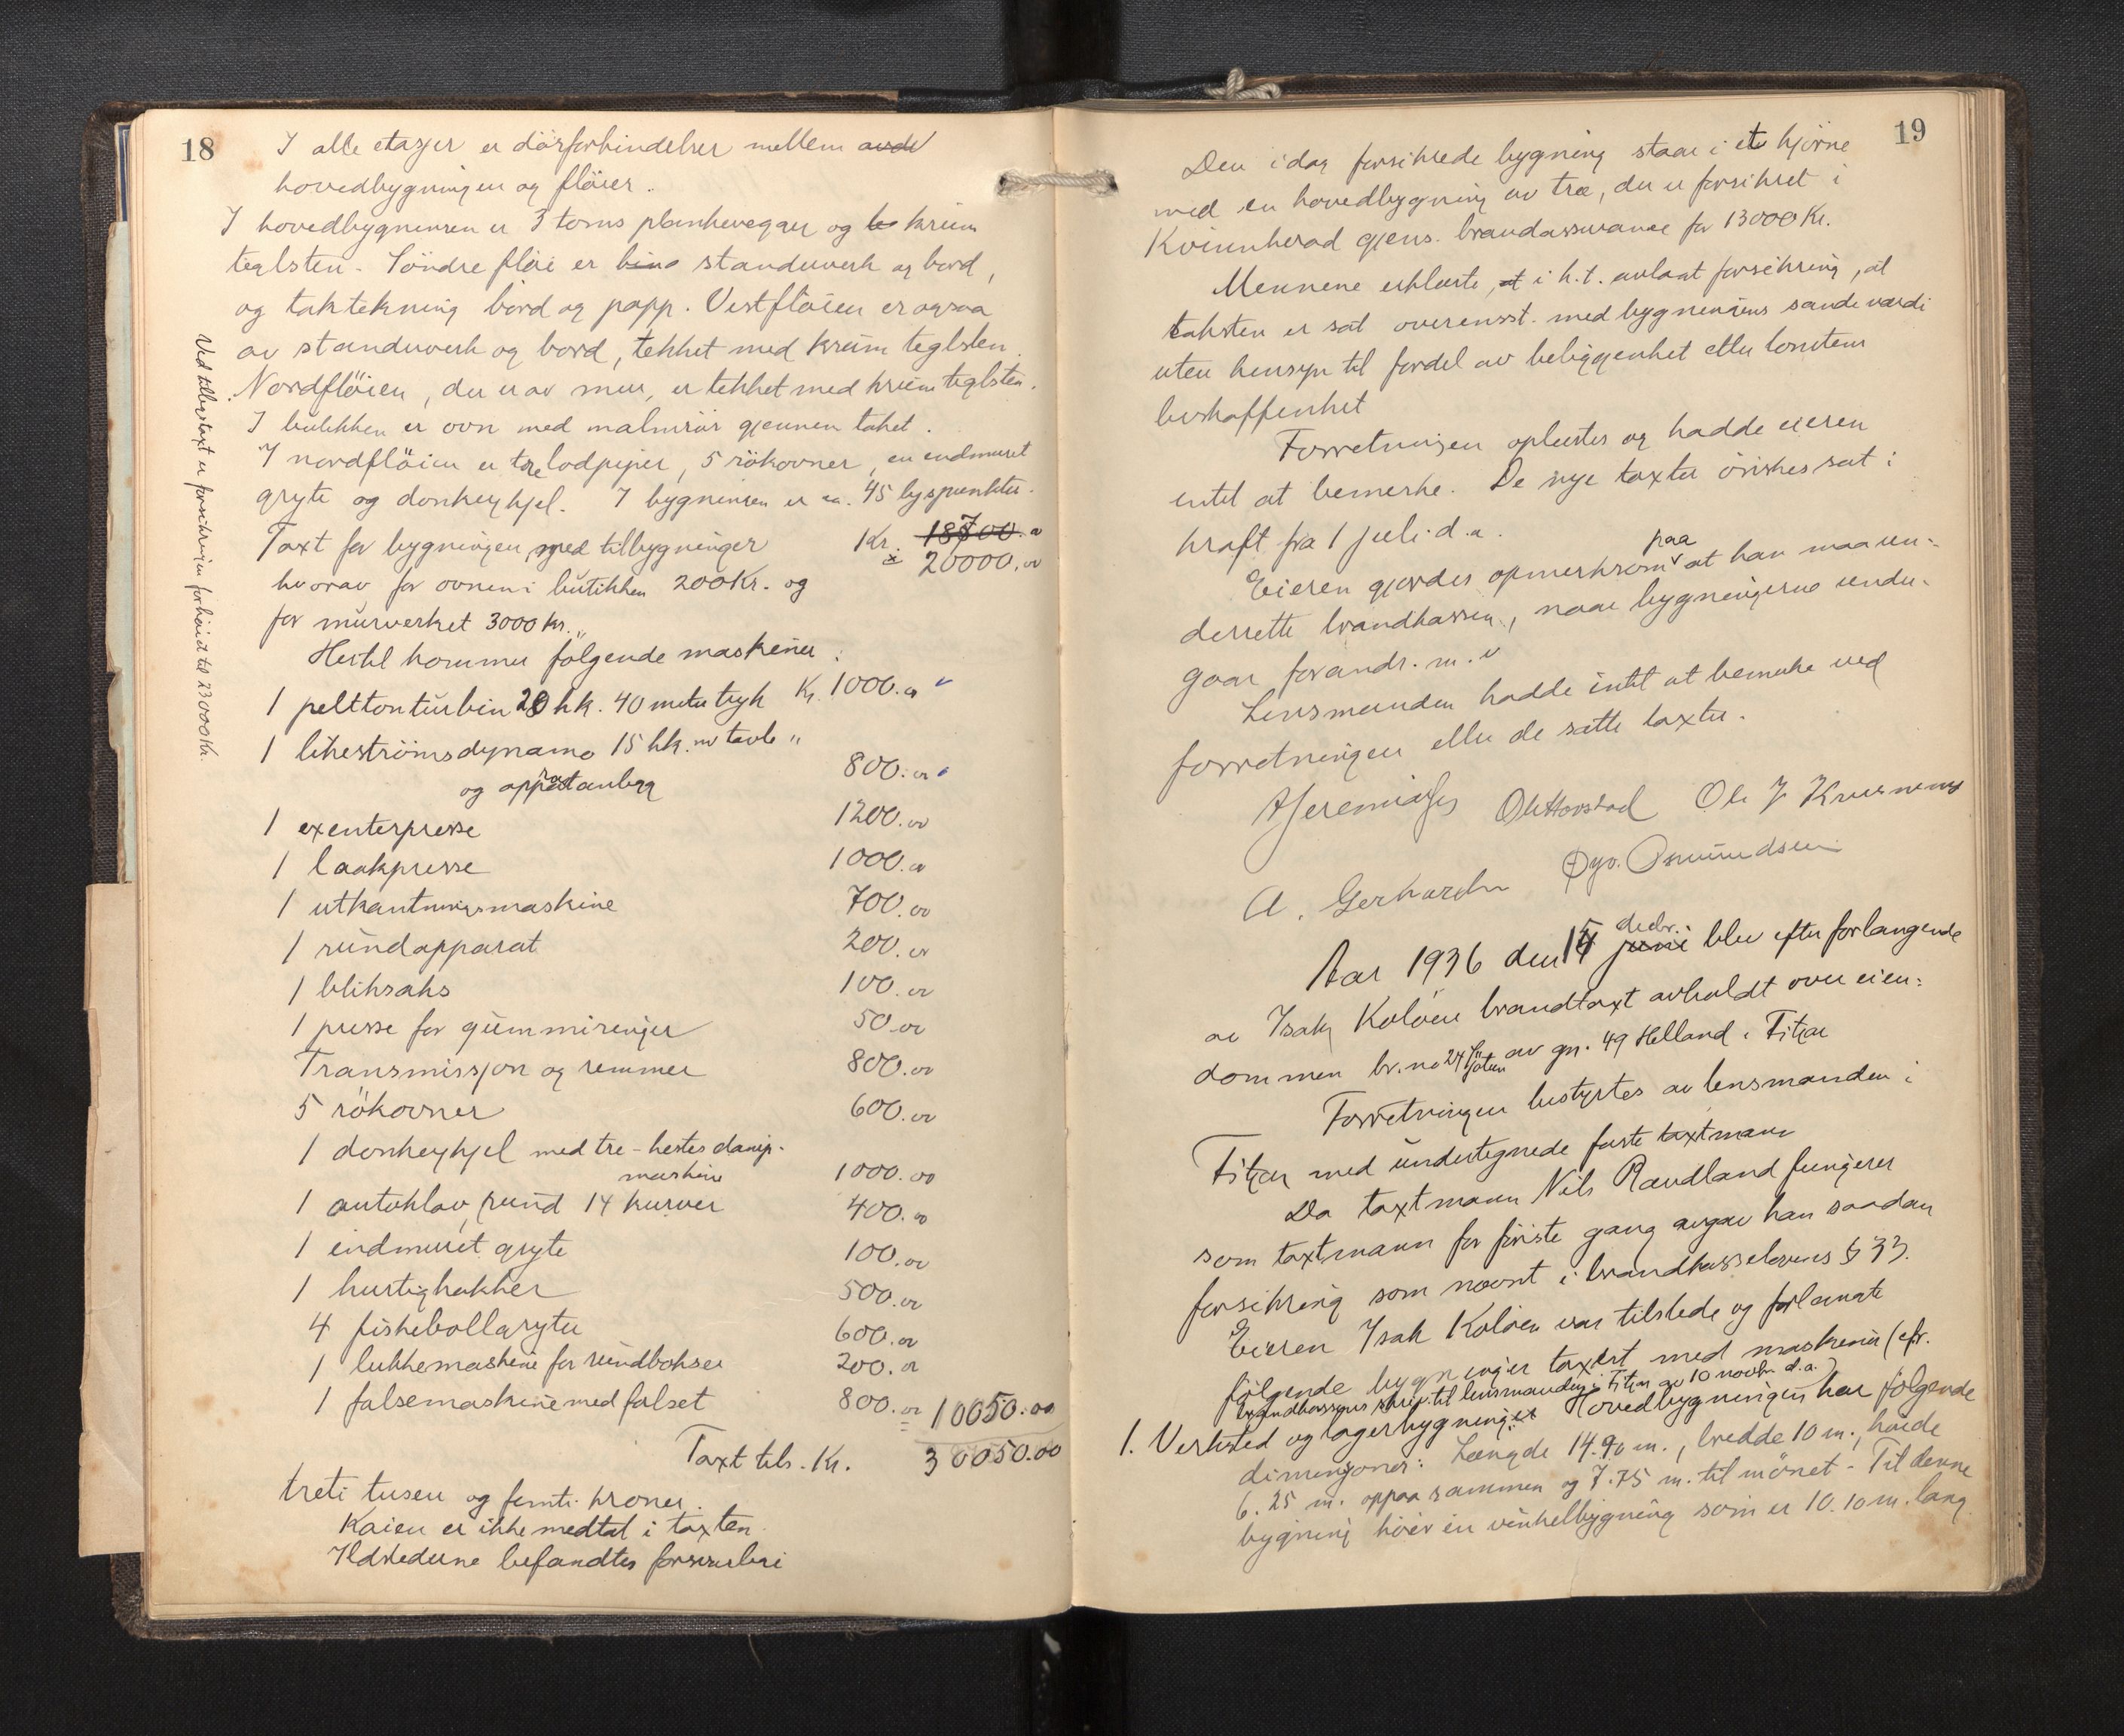 18
I alle etasjer er dörforbindelser mellem
hovedbygningen og flöier.
I hovedbygningen er 3 toms plankevegger og krum
teglsten. Söndre flöi er standerverk og bord,
og taktekning bord og papp. Vestflöien er ogsaa
av standerverk og bord, tekket med krum teglsten.
Nordflöien, der er av mur, er tekket med krum teglsten.
I butikken er ovn med malmrör gjennem taket.
I nordflöien er tre lodpiper, 5 rökovner, en indmuret
gryte og donkeykjel. I bygningen er ca. 45 lyspunkter.
Taxt for bygningen med tilbygninger Kr. 18700.00
hvorav for ovnen i butikken 200 Kr. og 20000.00
for murverket 3000 kr.
Hertil kommer følgende maskiner:
1 peltonturbin 20 hk. 40 meter tryk Kr. 1000.00
1 likeströmsdynamo 15 hk. m/ tavle "
og apparatanlegg 800.00
1 exenterpresse 1200.00
1 laakpresse 1000.00
1 utkantningsmaskine 700.00
1 rundapparat 200.00
1 bliksaks 100.00
1 presse for gummiringer 50.00
Transmissjon og remmer 800.00
5 rökovner 600.00
1 donkeykjel med tre-hestes damp-
maskine 1000.00
1 autoklav, rund 14 kurver 400.00
1 indmuret gryte 100.00
1 hurtighakker 500.00
4 fiskebollgryter 600.00
1 lukkemaskine for rundbokser 200.00
1 falsemaskine med falset 800.00 10050.00
Taxt tils. Kr. 30050.00
treti tusen og femti kroner.
Kaien er ikke medtat i taxten.
Ildstederne befandtes forsvarlige
Ved tilbygstaxt er forsikringen forhöiet til 23000 Kr.
19
Den idag forsikrede bygning staar i et hjörne
med en hovedbygning av træ, der er forsikret i
Kvinnherad gjens. brandassurance for 13000 Kr.
Mennene erklærte, i h.t. avlagt forsikring, at
taksten er sat overensst. med bygningens sande værdi
uten hensyn til fordel av beliggenhet eller tomtens
beskaffenhet
Forretningen oplæstes og hadde eieren
intet at bemerke. De nye taxter önskes sat i
kraft fra 1 juli d.a.
Eieren gjordes opmerksom paa at han maa un-
derrette brandkassen, naar bygningerne under-
gaar forandr. m.v
Lensmanden hadde intet at bemerke ved
forretningen eller de satte taxter.
A. Gerhardsen
Aar 1936 den 15 decbr. juni blev efter forlangende
av Isak Koløen brandtaxt avholdt over eien-
dommen br.no 24 av gn. 49 Helland i Fitjar
Forretningen bestyrtes av lensmanden i
Fitjar med undertegnede faste taxtmenn
Da taxtmann Nils Rændland fungerer
som taxtmann for første gang avgav han saadan
forsikring som nævnt i brandkasselovens § 33.
Eieren Isak Koløen var tilstede og forlangte
følgende bygninger taxert med maskiner (cfr.
brandkassens skriv. til lensmanden i Fitjar av 10 novbr. d.a.)
1. Verksted og lagerbygning. Hovedbygningen har følgende
dimensjoner: Længde 14.90 m., bredde 10 m., høide
6.25 m. oppaa rammen og 7.75 m. til mönet. Til denne
bygning höir en vinkelbygning som er 10.10 m. lang